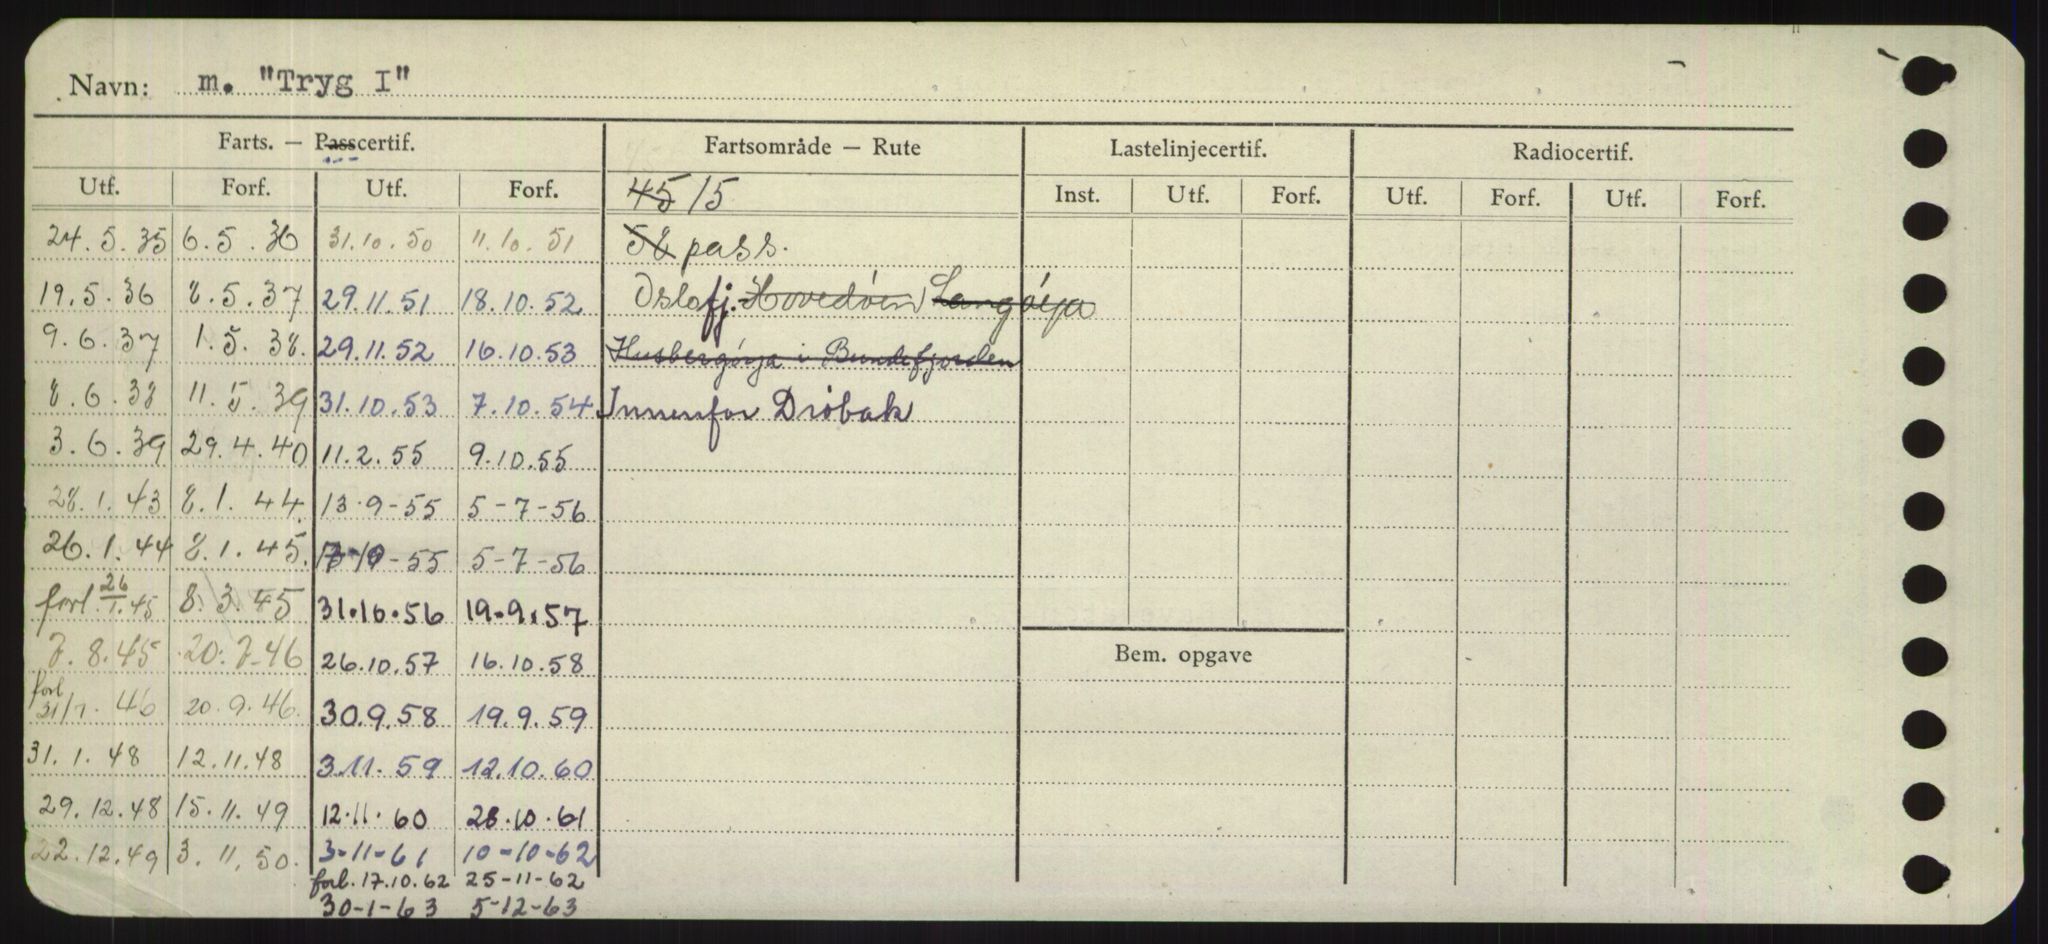 Navn: m. "Tryg I"
Farts. — Passcertif. Fartsområde — Rute Lastelinjecertif. Radiocertif.
Utf. Forf. Utf. Forf. 45 15 Inst. Utf. Forf. Utf. Forf. Utf. Forf.
24.5.35 6.5.36 31.10.50 11.10.51 58 pass.
19.5.36 8.5.37 29.11.51 18.10.52 Oslofj. Hovedøen Langøya
9.6.37 1.5.38. 29.11.52 16.10.53 Husbergøya i Bundefjorden
8.6.38 11.5.39 31.10.53 7.10.54 Innenfor Drøbak
3.6.39 29.4.40 11.2.55 9.10.55
28.1.43 8.1.44. 13.9-55 5-7-56
26.1.44 8.1.45. -55 5-7-56
forl. 26/1.45 8.3.45 31.10.56 19.9.57
7.8.45 20.7-46 26.10.57 16.10.58 Bem. opgave
forl 31/7.46 20.9.46. 30.9.58 19.9.59
31.1.48 12.11.48 3.11.59 12.10.60
29.12.48 15.11.49 12.11.60 28.10.61
22.12.49 3.11.50. 3-11-61 10-10-62
forl. 17.10.62 25-11-62
30-1-63 5-12-63